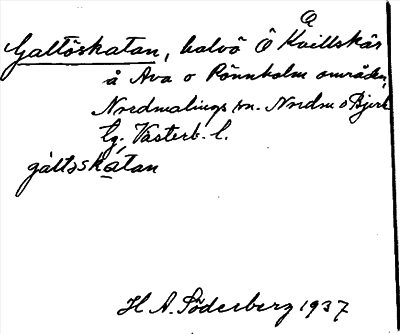 Galtöskatan, halvö Ö Kvillskär
å Ava o Rönnholm områden,
Nordmalings sn. Nordm o Bjurh
tg. Västerb. l.
gàltsskátan
H A. Söderberg 1937